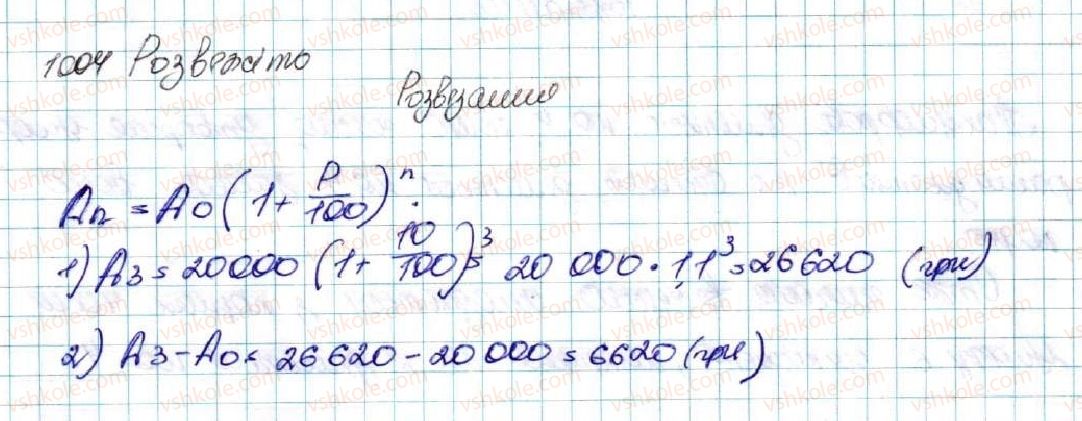 1004 Розвежіто
Розвезання
An = A0 (1 + P/100)^n.
1) A3 = 20000 (1 + 10/100)^3 = 20 000 · 1,1^3 = 26620 (грн)
2) A3 - A0 = 26 620 - 20 000 = 6620 (грн)